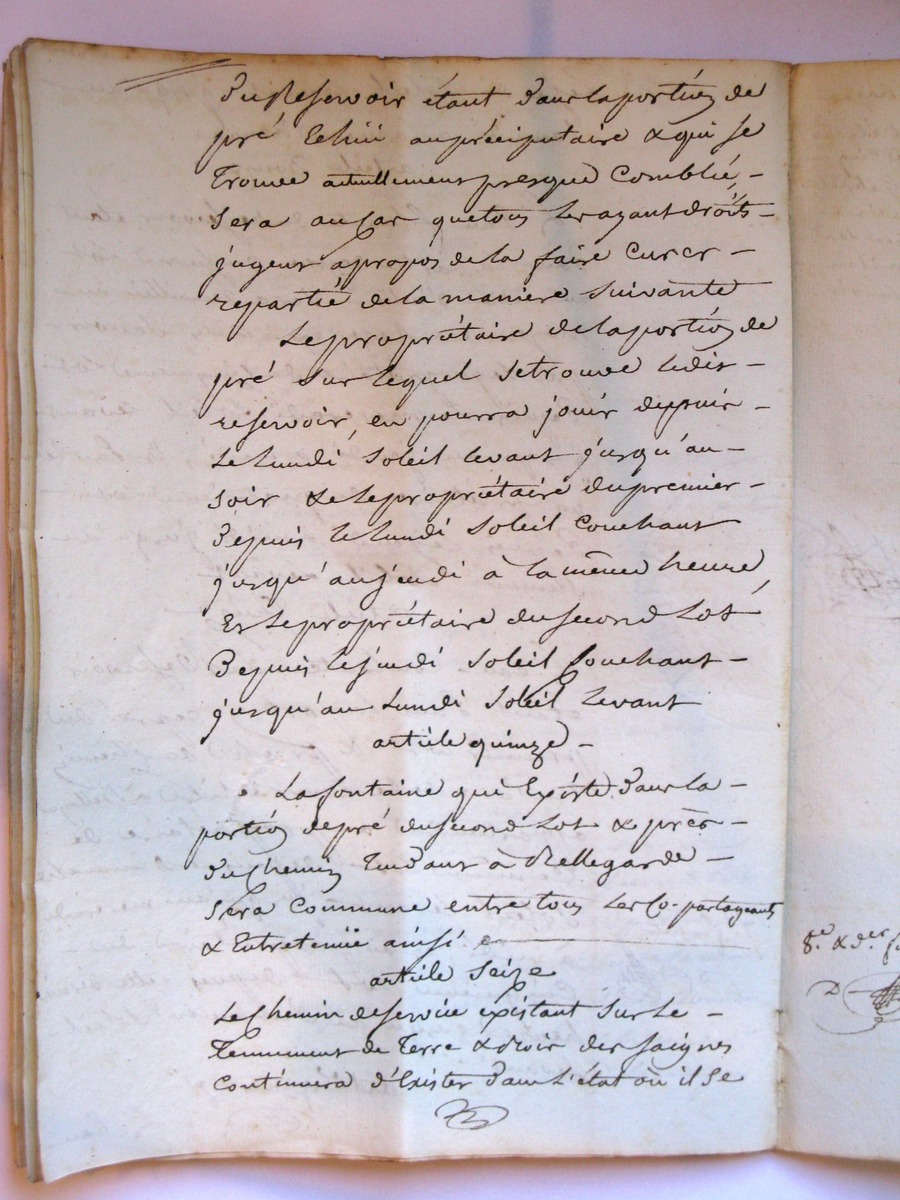 Du Reservoir étant dans la portion de
pré Echüe au préciputaire & qui se
Trouve actuellement presque Comblé,
Sera au Cas que tous les ayant droits
jugent apropos de la faire Curer
repartie de la maniere Suivante
Le propriétaire de la portion de
pré Sur lequel Se trouve ledit
reservoir, en pourra jouir depuis
Le lundi Soleil levant jusqu'au
Soir & le propriétaire du premier
Depuis le lundi Soleil Couchant
jusqu'au jeudi à la même heure,
Et le propriétaire du Second Lot
Depuis le jeudi Soleil Couchant
jusqu'au Lundi Soleil Levant
article quinze
La fontaine qui Existe Dans la
portion de pré du Second Lot & près
Du Chemin Tendant à Bellegarde
Sera Commune entre tous Les Co-partageants
& Entretenüe ainsi
article Seize
Le Chemin de Service existant Sur Le
Tennement de Terre & des Saignes
Continuera d'Exister Dans L'état où il Se
8.e & d.er